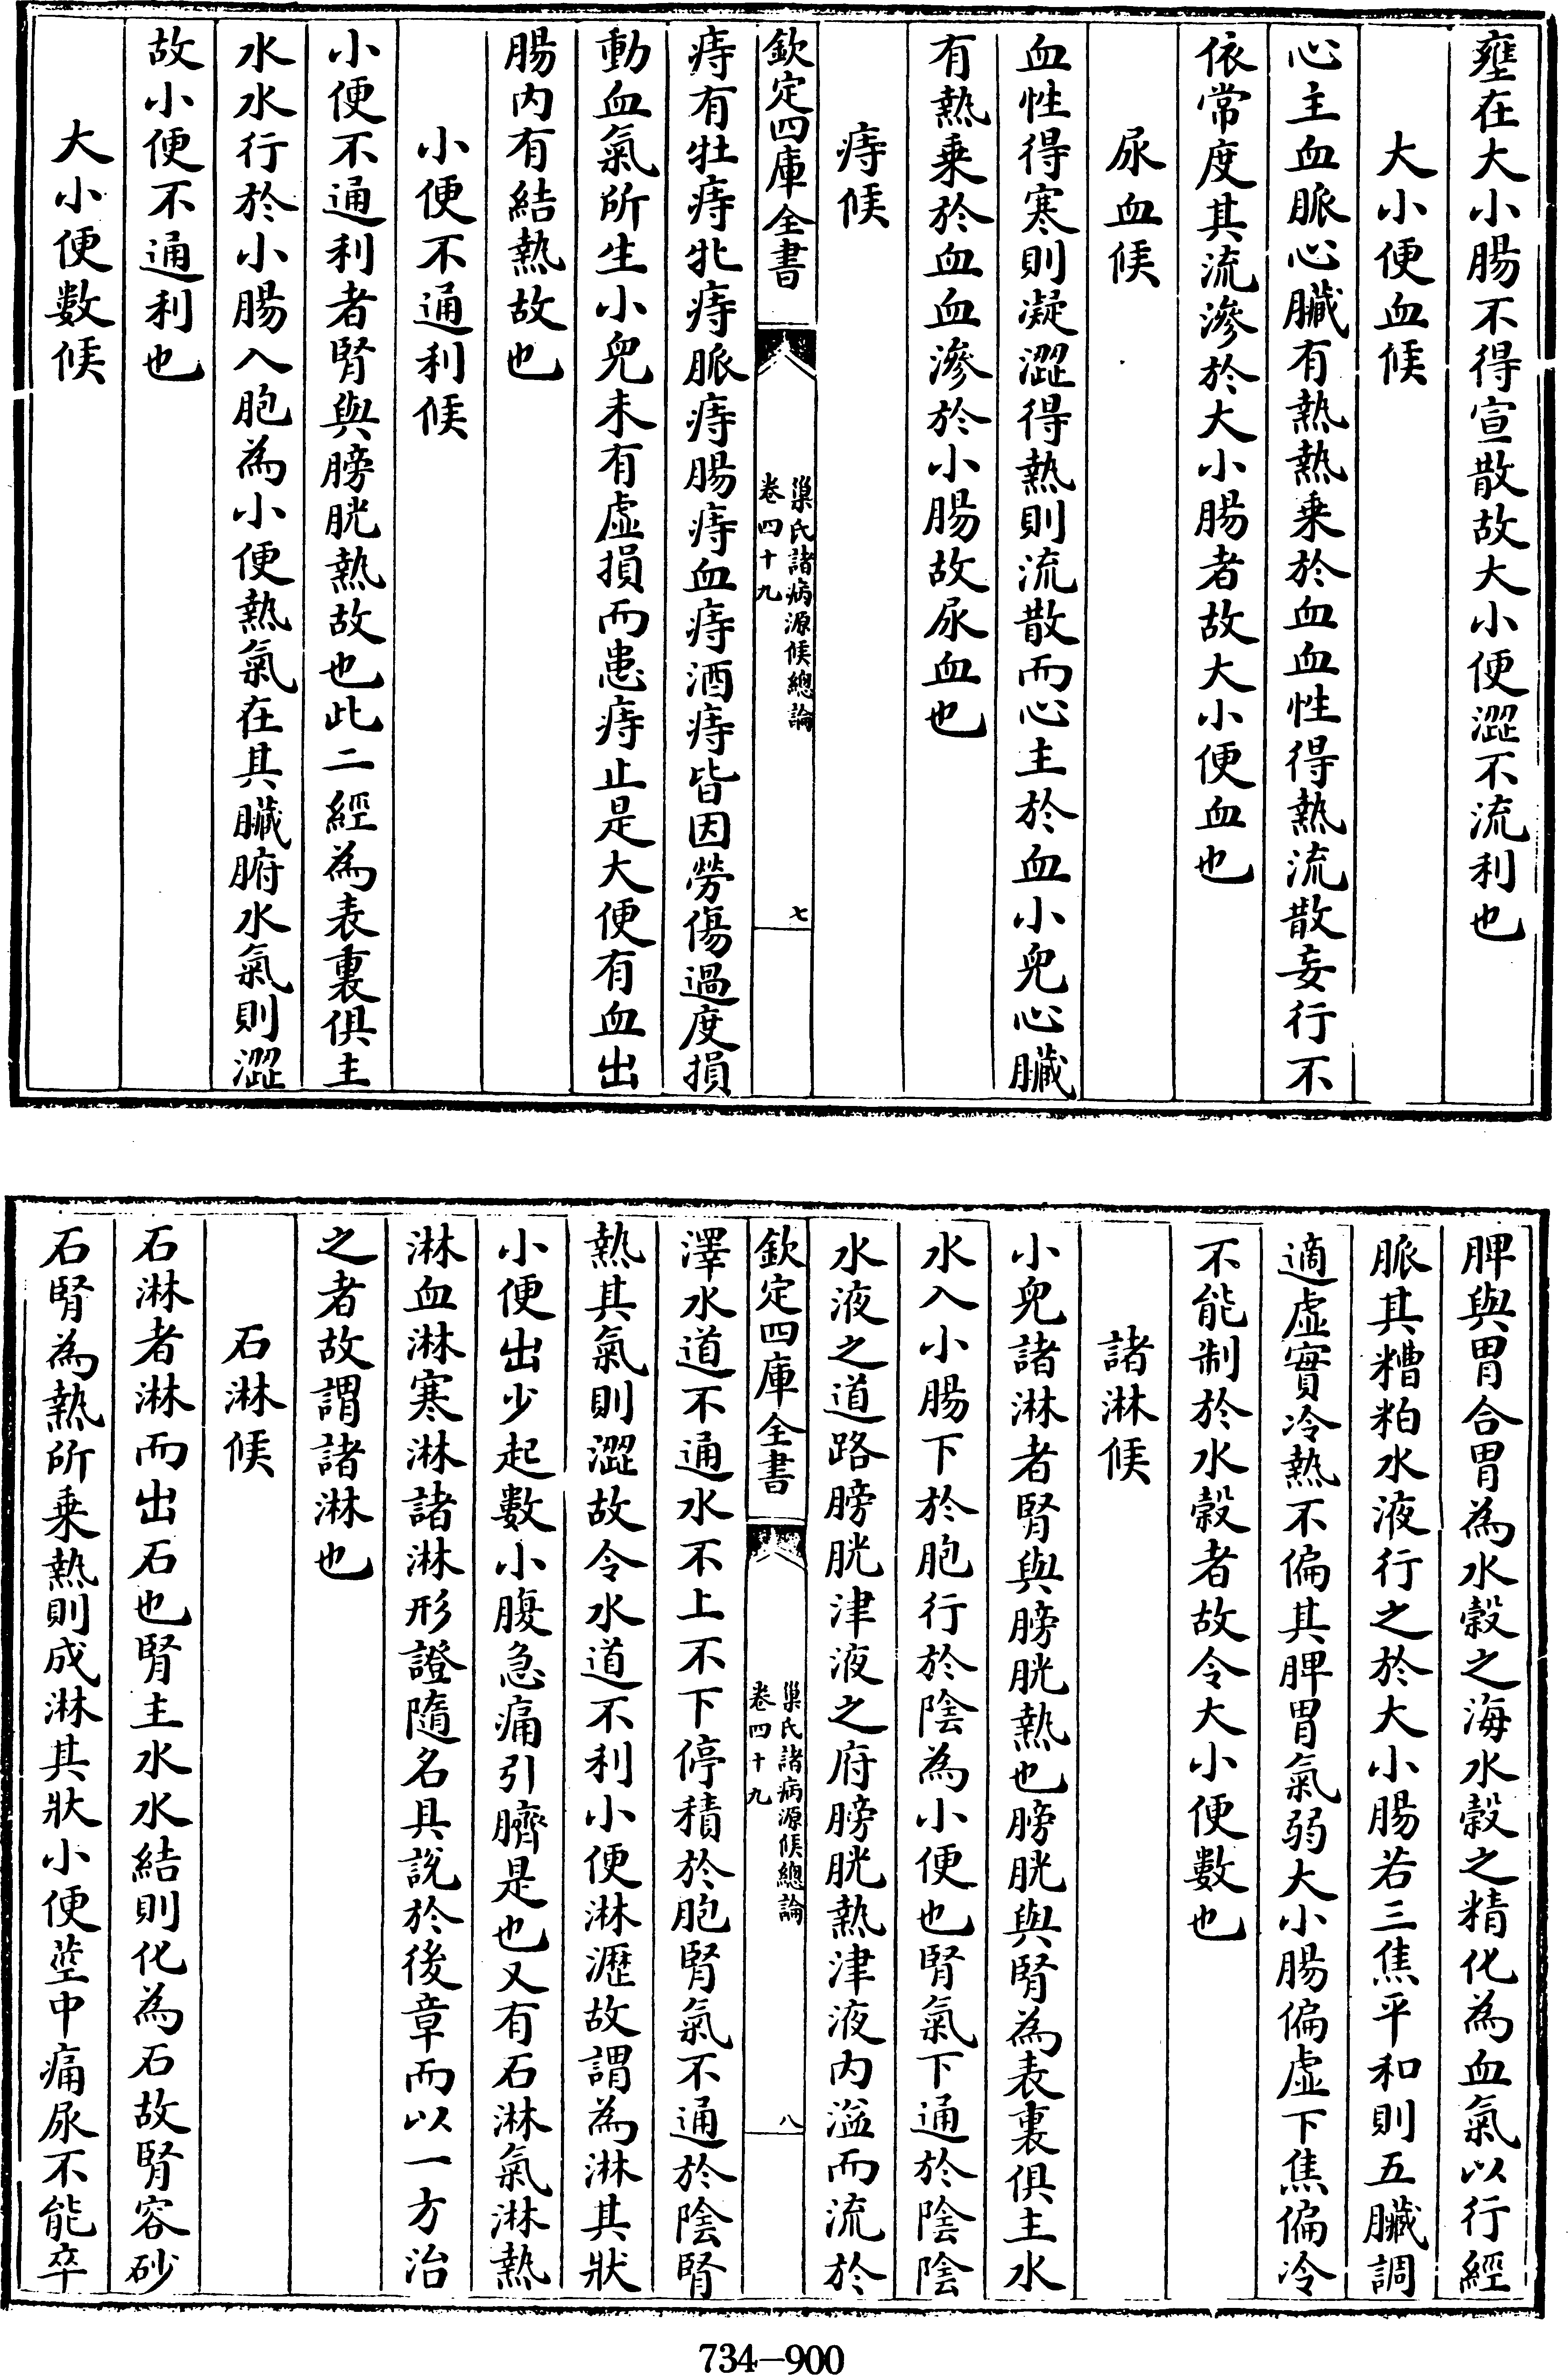 壅在大小腸不得宣散故大小便澀不流利也
大小便血候
心主血脈心臟有熱熱乗於血血性得熱流散妄行不
依常度其流滲於大小腸者故大小便血也
尿血候
血性得寒則凝澀得熱則流散而心主於血小兒心臟
有熱乗於血血滲於小腸故尿血也
痔候
欽定四庫全書
巢氏諸病源候總論
卷四十九
七
痔有牡痔牝痔脈痔腸痔血痔酒痔皆因勞傷過度損
動血氣所生小兒未有虛損而患痔止是大便有血出
腸内有結熱故也
小便不通利候
小便不通利者腎與膀胱熱故也此二經為表裏俱主
水水行於小腸入胞為小便熱氣在其臟腑水氣則澀
故小便不通利也
大小便数候
脾與胃合胃為水穀之海水穀之精化為血氣以行經
脈其糟粕水液行之於大小腸若三焦平和則五臟調
適虛實冷熱不偏其脾胃氣弱大小腸偏虛下焦偏冷
不能制於水穀者故令大小便數也
諸淋候
小兒諸淋者腎與膀胱熱也膀胱與腎為表裏俱主水
水入小腸下於胞行於陰為小便也腎氣下通於陰陰
水液之道路膀胱津液之府膀胱熱津液内溢而流於
欽定四庫全書
巢氏諸病源候總論
卷四十九
八
澤水道不通水不上不下停積於胞腎氣不通於陰腎
熱其氣則澀故令水道不利小便淋瀝故謂為淋其狀
小便出少起數小腹急痛引臍是也又有石淋氣淋熱
淋血淋寒淋諸淋形證隨名具說於後章而以一方治
之者故謂諸淋也
石淋候
石淋者淋而出石也腎主水水結則化為石故腎容砂
石腎為熱所乗熱則成淋其狀小便莖中痛尿不能卒
734-900